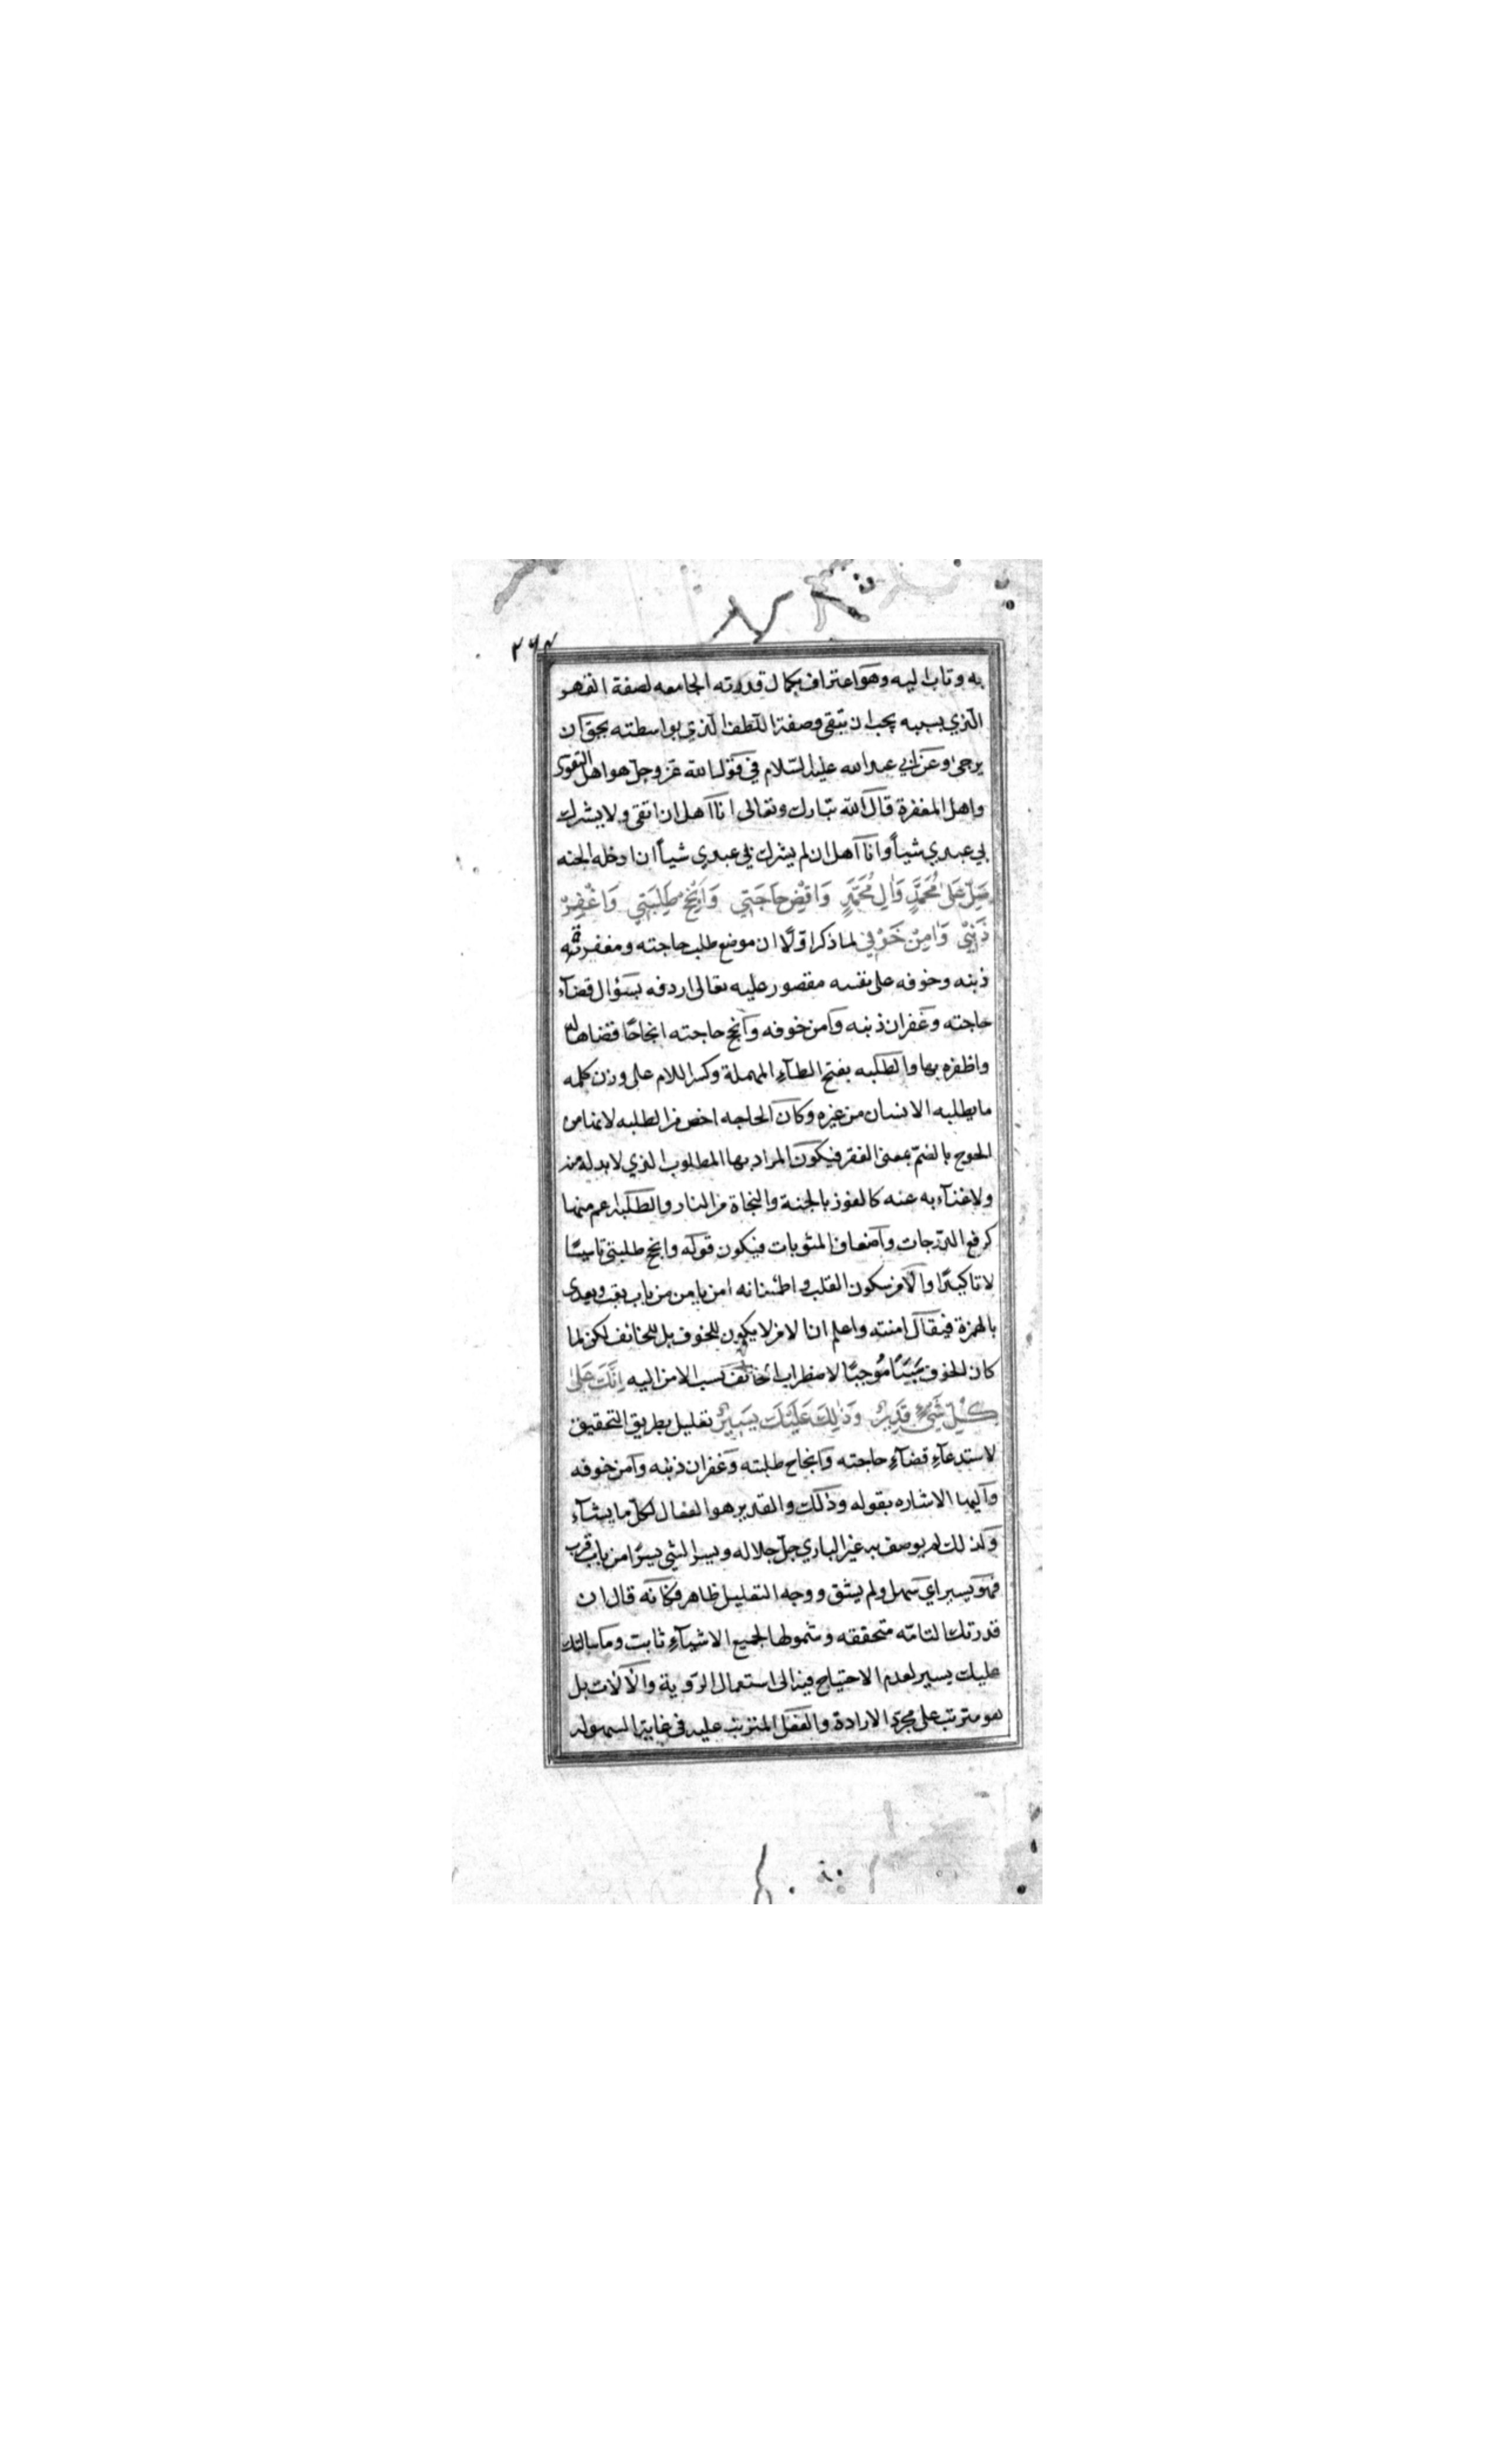 ٢٦٨
به وتاب اليه وهو اعتراف بكمال قدرته الجامعه لصفة القهر
الّذي بسببه يجب ان يتقى وصفة اللّطف الّذي بواسطته يحقّ ان
يرجى وعن ابي عبد الله عليه السّلام في قول الله عزّ وجلّ هو اهل التقوى
واهل المغفرة قال الله تبارك وتعالى انا اهل ان اتقى ولا يشرك
بي عبدي شيأً وانا اهل ان لم يشرك بي عبدي شيأً ان ادخله الجنه
صَلِّ عَلىٰ مُحَمَّدٍ وَاٰلِ مُحَمَّدٍ وَاقْضِ حَاجَتِي وَاَنْجِحْ طَلِبَتِي وَاغْفِرْ
ذَنْبِي وَاٰمِنْ خَوْفِي لما ذكر اوّلاً ان موضع طلب حاجته ومغفرته
ذبنه وخوفه على نفسه مقصور عليه تعالى اردفه بسؤال قضآء
حاجته وغفران ذنبه وآمن خوفه وآنجح حاجته انجاحًا قضاها له
واظفره بها والطلبه بفتح الطآءِ المهملة وكسر اللام على وزن كلمه
ما يطلبه الانسان من غيره وكان الحاجه اخص من الطلبه لانها من
الحوج بالضمّ بمعنى الفقر فيكون المراد بها المطلوب الذي لا بد له منه
ولا غنآء به عنه كالفوز بالجنة والنجاة من النار والطلبه اعم منها
كرفع الدّرجات وآضعاف المثوبات فيكون قوله وانجح طلبتي تاسيسًا
لا تاكيدًا والآمن سكون القلب واطمئنانه امن يامن من باب تعب ويعدى
بالهمزة فيقال امنته واعلم ان الامن لا يكون للخوف بل للخائف لكن لما
كان الخوف سَبَبًا مُوجبًا لاضطراب الخائف نسب الامن اليه اِنَّكَ عَلىٰ
كُلِّ شَيْءٍ قَدِيرٌ وَذٰلِكَ عَلَيْكَ يَسِيرٌ تعليل بطريق التحقيق
لاستدعآءِ قضآءِ حاجته وآنجاح طلبته وغفران ذنبه وآمن خوفه
وآليها الاشاره بقوله وذلك والقدير هو الفعال لكلّ ما يشآء
ولذلك لم يوصف به غير الباري جلّ جلاله ويسر الشي يسرًا من باب قرب
فهو يسير اي سهل ولم يشق ووجه التعليل ظاهر فكانّه قال ان
قدرتك التامّه متحققه وشمولها لجميع الاشيآءِ ثابت وما سالتك
عليك يسير لعدم الاحتياج فيه الى استعمال الرّوية والآلات بل
هو مترتب على مجرد الارادة والفعل المترتب عليه في غاية السهوله